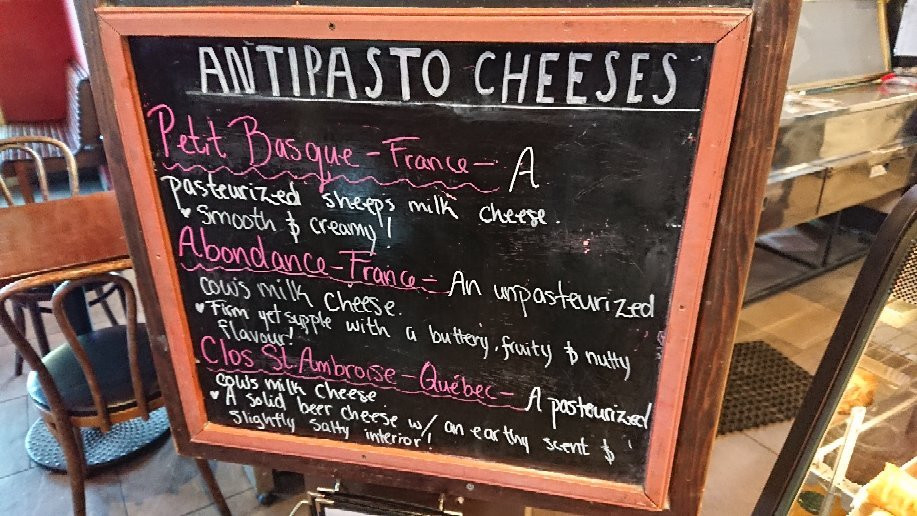 ANTIPASTO CHEESES
Petit Basque - France - A
pasteurized sheeps milk cheese.
♥ Smooth & creamy!
Abondance - France - An unpasteurized
cows milk cheese.
♥ Firm yet supple with a buttery, fruity & nutty
flavour!
Clos St. Ambroise - Québec - A pasteurized
cows milk cheese.
♥ A solid beer cheese w/ an earthy scent &
slightly salty interior!